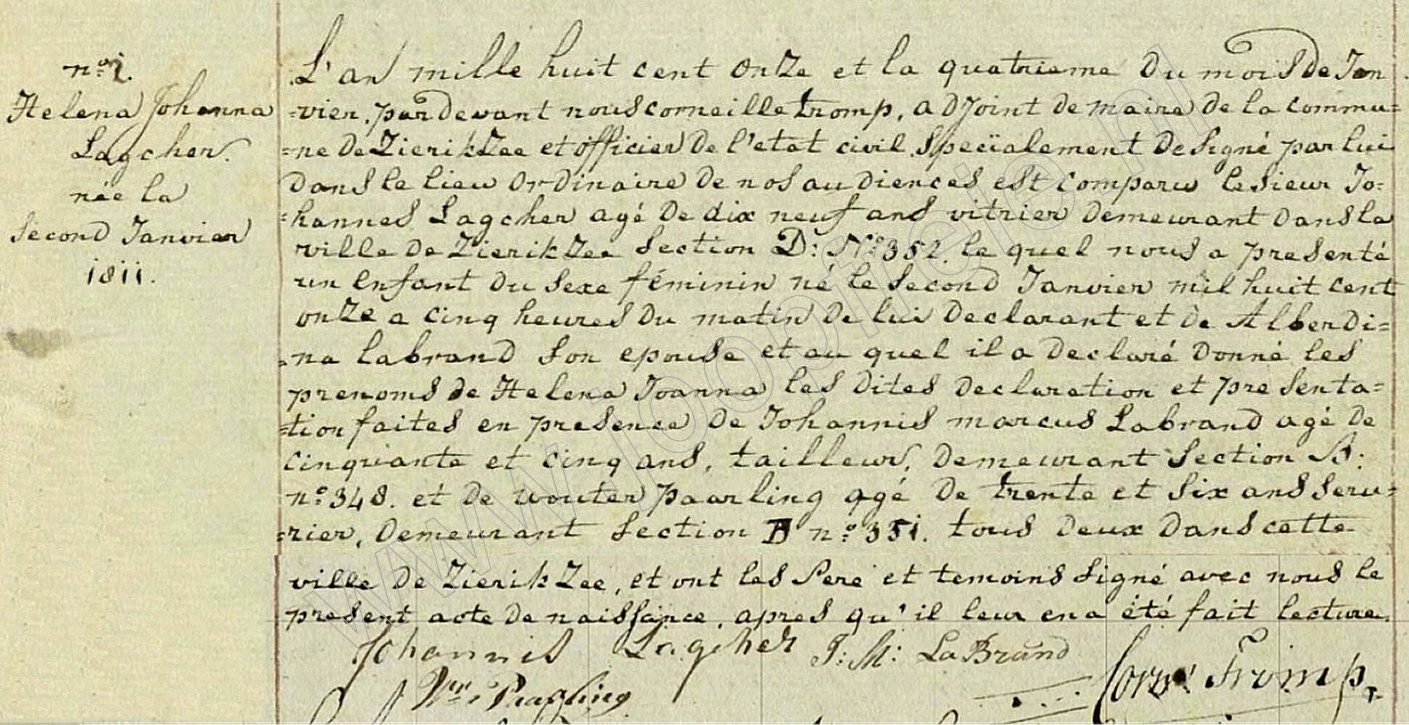 nº 1.
Helena Johanna
Lagcher.
née la
Second Janvier
1811.
L'an mille huit cent onze et la quatrieme du mois de Jan
=vier, par devant nous corneille tromp, adjoint de maire de la commu=
=ne de Zierikzee et officier de l'etat civil specïalement designé par lui
dans le lieu ordinaire de nos audiences est comparu le sieur Jo=
=hannes Lagcher agé de dix neuf ans vitrier demeurant dans la
ville de Zierikzee section D: Nº 352. le quel nous a presenté
un enfant du sexe féminin né le second Janvier mil huit cent
onze a cinq heures du matin de lui declarant et de Alberdi=
=na labrand son epouse et au quel il a declaré donné les
prenoms de Helena Joanna les dites declaration et presenta=
=tion faites en presence de Johannis marcus Labrand agé de
cinquante et cinq ans, tailleur, demeurant section B:
nº 348. et de wouter paarling agé de trente et six ans seru=
=rier, demeurant section B nº 351. tous deux dans cette
ville de Zierikzee, et ont les Pere et temoins signé avec nous le
present acte de naissance, apres qu'il leur en a été fait lecture.
Johannis Lagcher J: M: LaBrand
Wr. Paarling Corns Tromp.
www.jooprieje.nl